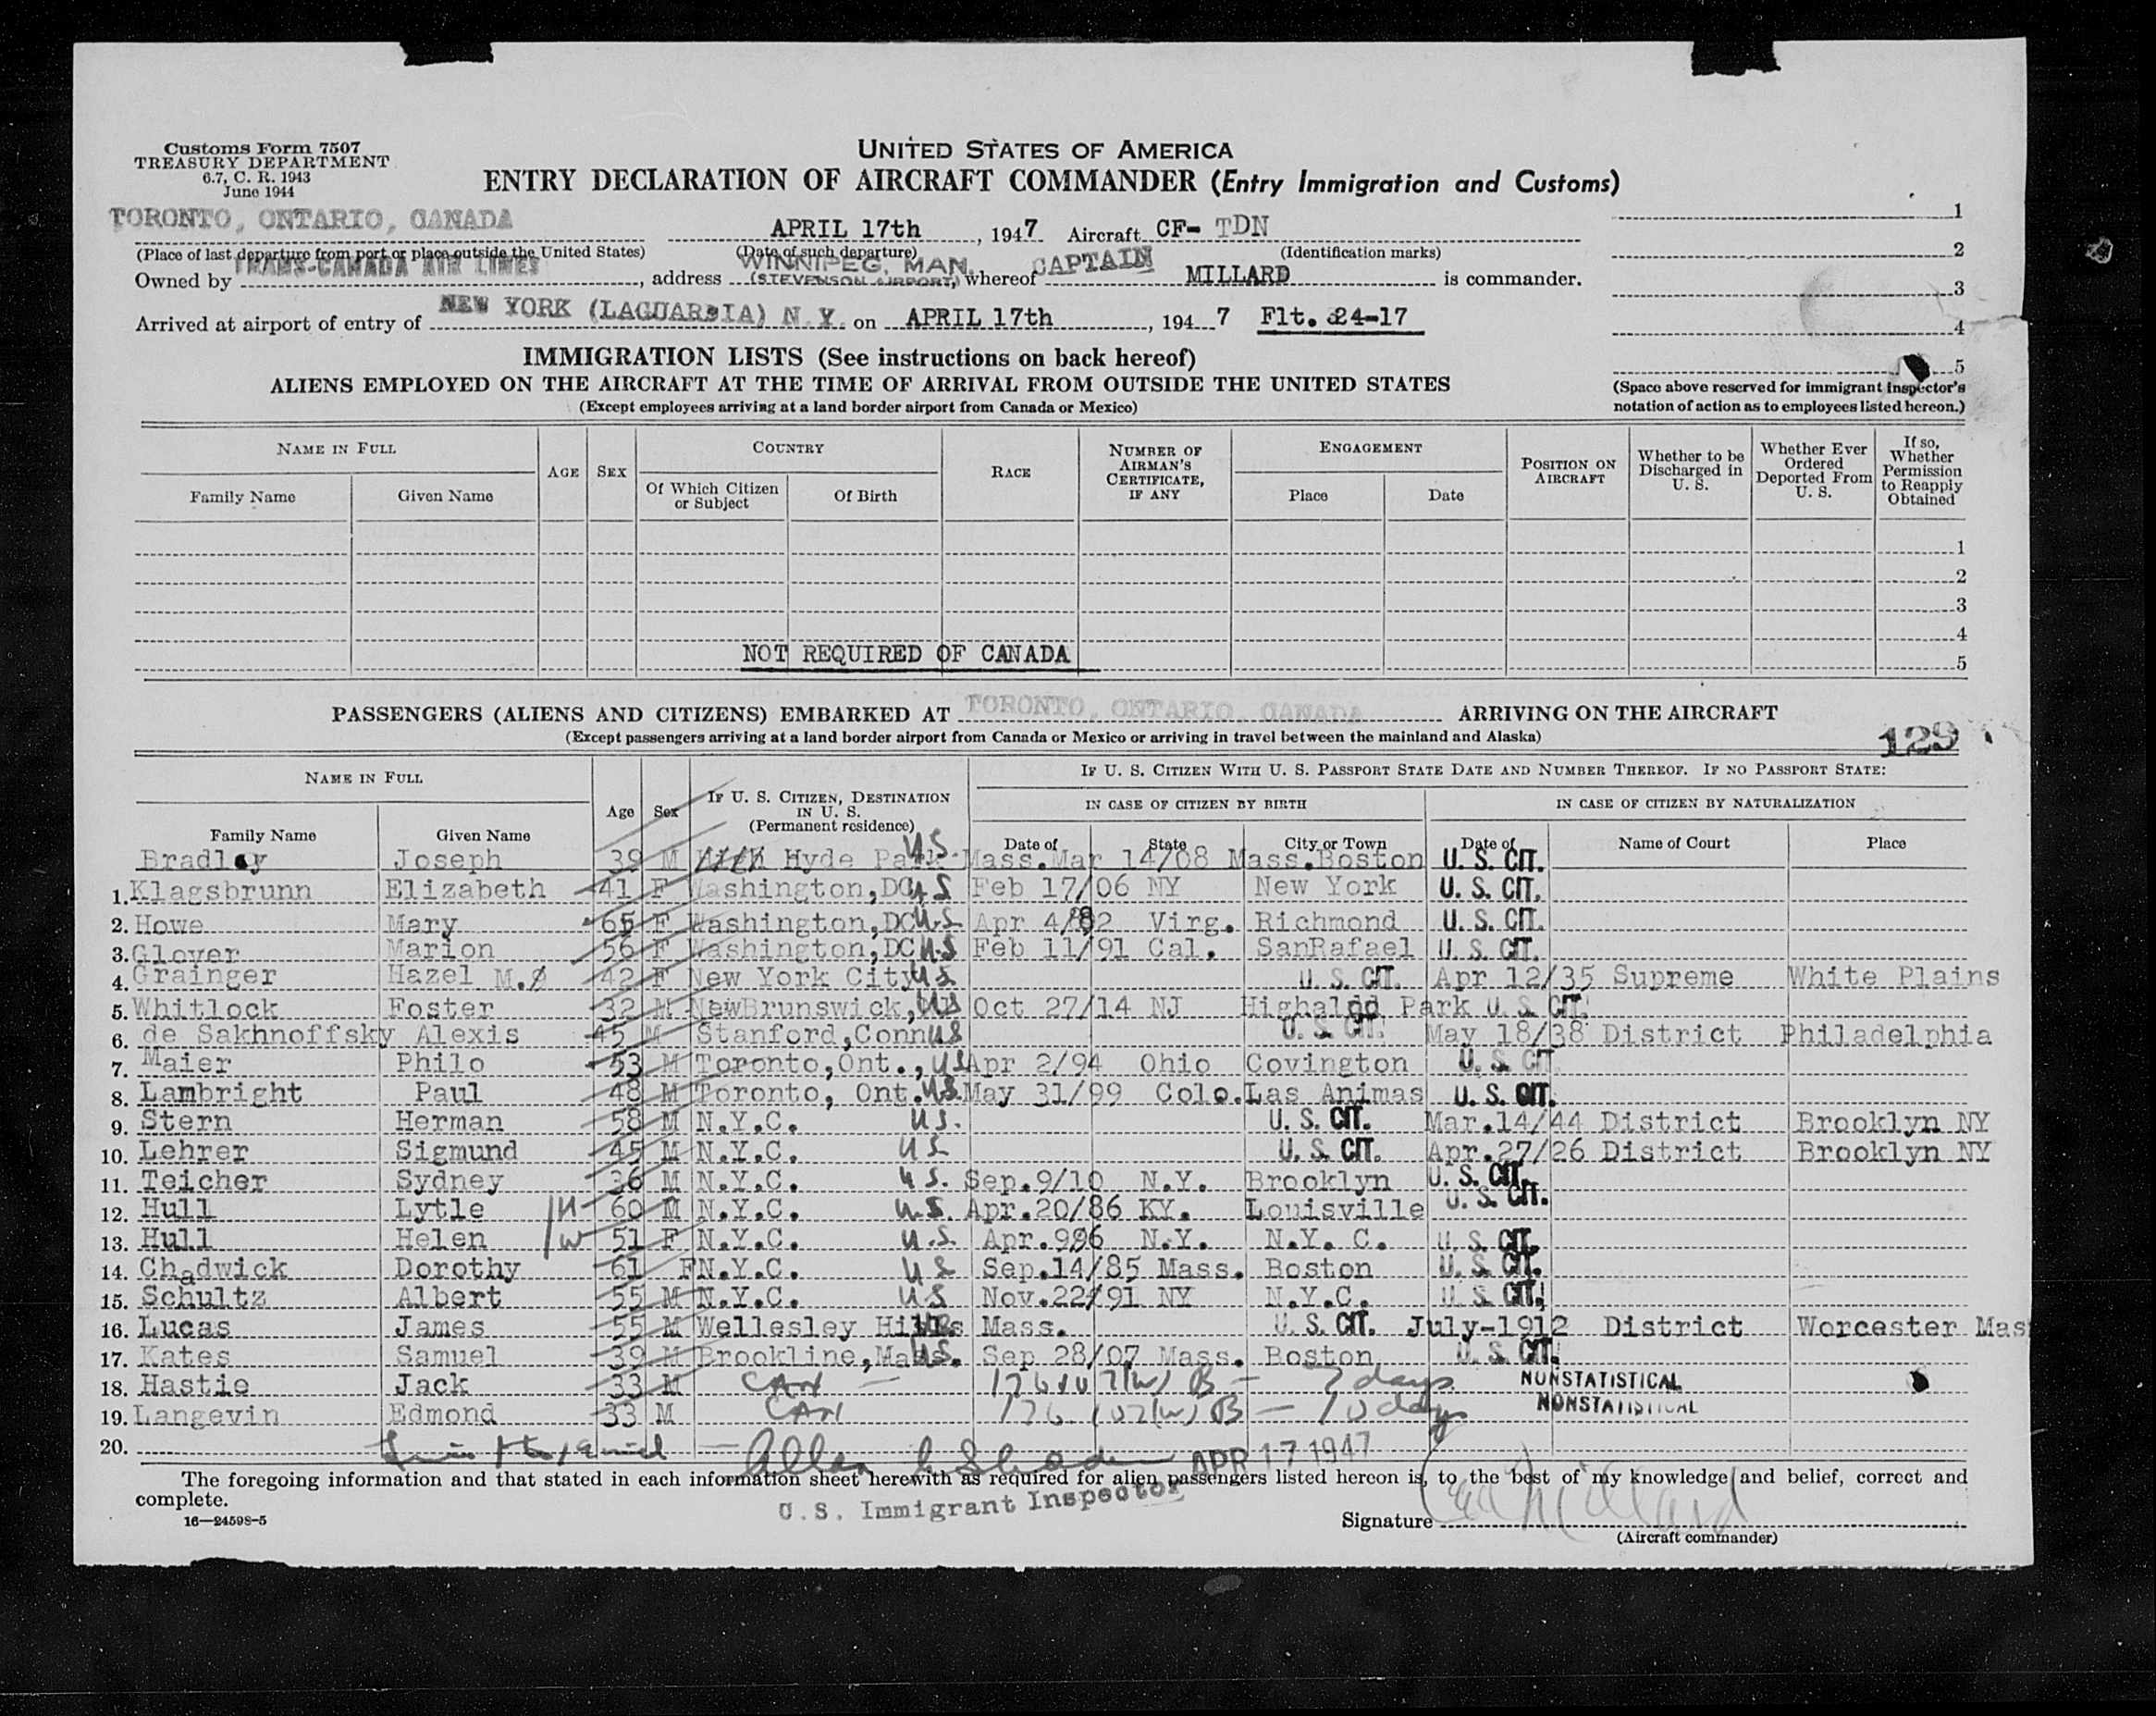 Customs Form 7507
TREASURY DEPARTMENT
6.7, C. R. 1943
June 1944
UNITED STATES OF AMERICA
ENTRY DECLARATION OF AIRCRAFT COMMANDER (Entry Immigration and Customs)
TORONTO, ONTARIO, CANADA APRIL 17th, 1947 Aircraft CF- TDN
(Place of last departure from port or place outside the United States) (Date of such departure) (Identification marks)
Owned by TRANS-CANADA AIR LINES, address WINNIPEG, MAN. (STEVENSON AIRPORT), whereof CAPTAIN MILLARD is commander.
Arrived at airport of entry of NEW YORK (LAGUARDIA) N.Y. on APRIL 17th, 1947 Flt. 24-17
1
2
3
4
5
(Space above reserved for immigrant inspector's
notation of action as to employees listed hereon.)
IMMIGRATION LISTS (See instructions on back hereof)
ALIENS EMPLOYED ON THE AIRCRAFT AT THE TIME OF ARRIVAL FROM OUTSIDE THE UNITED STATES
(Except employees arriving at a land border airport from Canada or Mexico)
NAME IN FULL
Family Name Given Name
AGE SEX
COUNTRY
Of Which Citizen or Subject Of Birth
RACE
NUMBER OF AIRMAN'S CERTIFICATE, IF ANY
ENGAGEMENT
Place Date
POSITION ON AIRCRAFT
Whether to be Discharged in U. S.
Whether Ever Ordered Deported From U. S.
If so, Whether Permission to Reapply Obtained
1
2
3
4
NOT REQUIRED OF CANADA 5
PASSENGERS (ALIENS AND CITIZENS) EMBARKED AT TORONTO, ONTARIO, CANADA ARRIVING ON THE AIRCRAFT
(Except passengers arriving at a land border airport from Canada or Mexico or arriving in travel between the mainland and Alaska)
129
NAME IN FULL
Family Name Given Name
Age Sex
IF U. S. CITIZEN, DESTINATION IN U. S. (Permanent residence)
IF U. S. CITIZEN WITH U. S. PASSPORT STATE DATE AND NUMBER THEREOF. IF NO PASSPORT STATE:
IN CASE OF CITIZEN BY BIRTH IN CASE OF CITIZEN BY NATURALIZATION
Date of State City or Town Date of Name of Court Place
Bradley Joseph 39 M Hyde Park US Mass. Mar 14/08 Mass. Boston U. S. CIT.
1. Klagsbrunn Elizabeth 41 F Washington,DC US Feb 17/06 NY New York U. S. CIT.
2. Howe Mary 65 F Washington,DC U.S Apr 4/82 Virg. Richmond U. S. CIT.
3. Glover Marion 56 F Washington,DC U.S Feb 11/91 Cal. SanRafael U. S. CIT.
4. Grainger Hazel M. 42 F New York City US U. S. CIT. Apr 12/35 Supreme White Plains
5. Whitlock Foster 32 M NewBrunswick, US Oct 27/14 NJ Highaldd Park U. S. CIT.
6. de Sakhnoffsky Alexis 45 M Stanford,Conn US U. S. CIT. May 18/38 District Philadelphia
7. Maier Philo 53 M Toronto,Ont., US Apr 2/94 Ohio Covington U. S. CIT
8. Lambright Paul 48 M Toronto, Ont. U.S. May 31/99 Colo. Las Animas U. S. CIT.
9. Stern Herman 58 M N.Y.C. US. U. S. CIT. Mar.14/44 District Brooklyn NY
10. Lehrer Sigmund 45 M N.Y.C. US U. S. CIT. Apr.27/26 District Brooklyn NY
11. Teicher Sydney 36 M N.Y.C. US. Sep.9/10 N.Y. Brooklyn U. S. CIT.
12. Hull Lytle H 60 M N.Y.C. U.S. Apr.20/86 KY. Louisville U. S. CIT.
13. Hull Helen W 51 F N.Y.C. U.S. Apr.996 N.Y. N.Y. C. U. S. CIT.
14. Chadwick Dorothy 61 F N.Y.C. US Sep.14/85 Mass. Boston U. S. CIT.
15. Schultz Albert 55 M N.Y.C. US Nov.22/91 NY N.Y.C. U. S. CIT.
16. Lucas James 55 M Wellesley Hills US Mass. U. S. CIT. July-1912 District Worcester Mas
17. Kates Samuel 39 M Brookline,Mass. US. Sep 28/07 Mass. Boston U. S. CIT.
18. Hastie Jack 33 M CAN — B — 7 days NONSTATISTICAL
19. Langevin Edmond 33 M CAN B — 10 days NONSTATISTICAL
20. APR 17 1947
The foregoing information and that stated in each information sheet herewith as required for alien passengers listed hereon is, to the best of my knowledge and belief, correct and
complete.
U.S. Immigrant Inspector
16—24598-5
Signature Millard
(Aircraft commander)